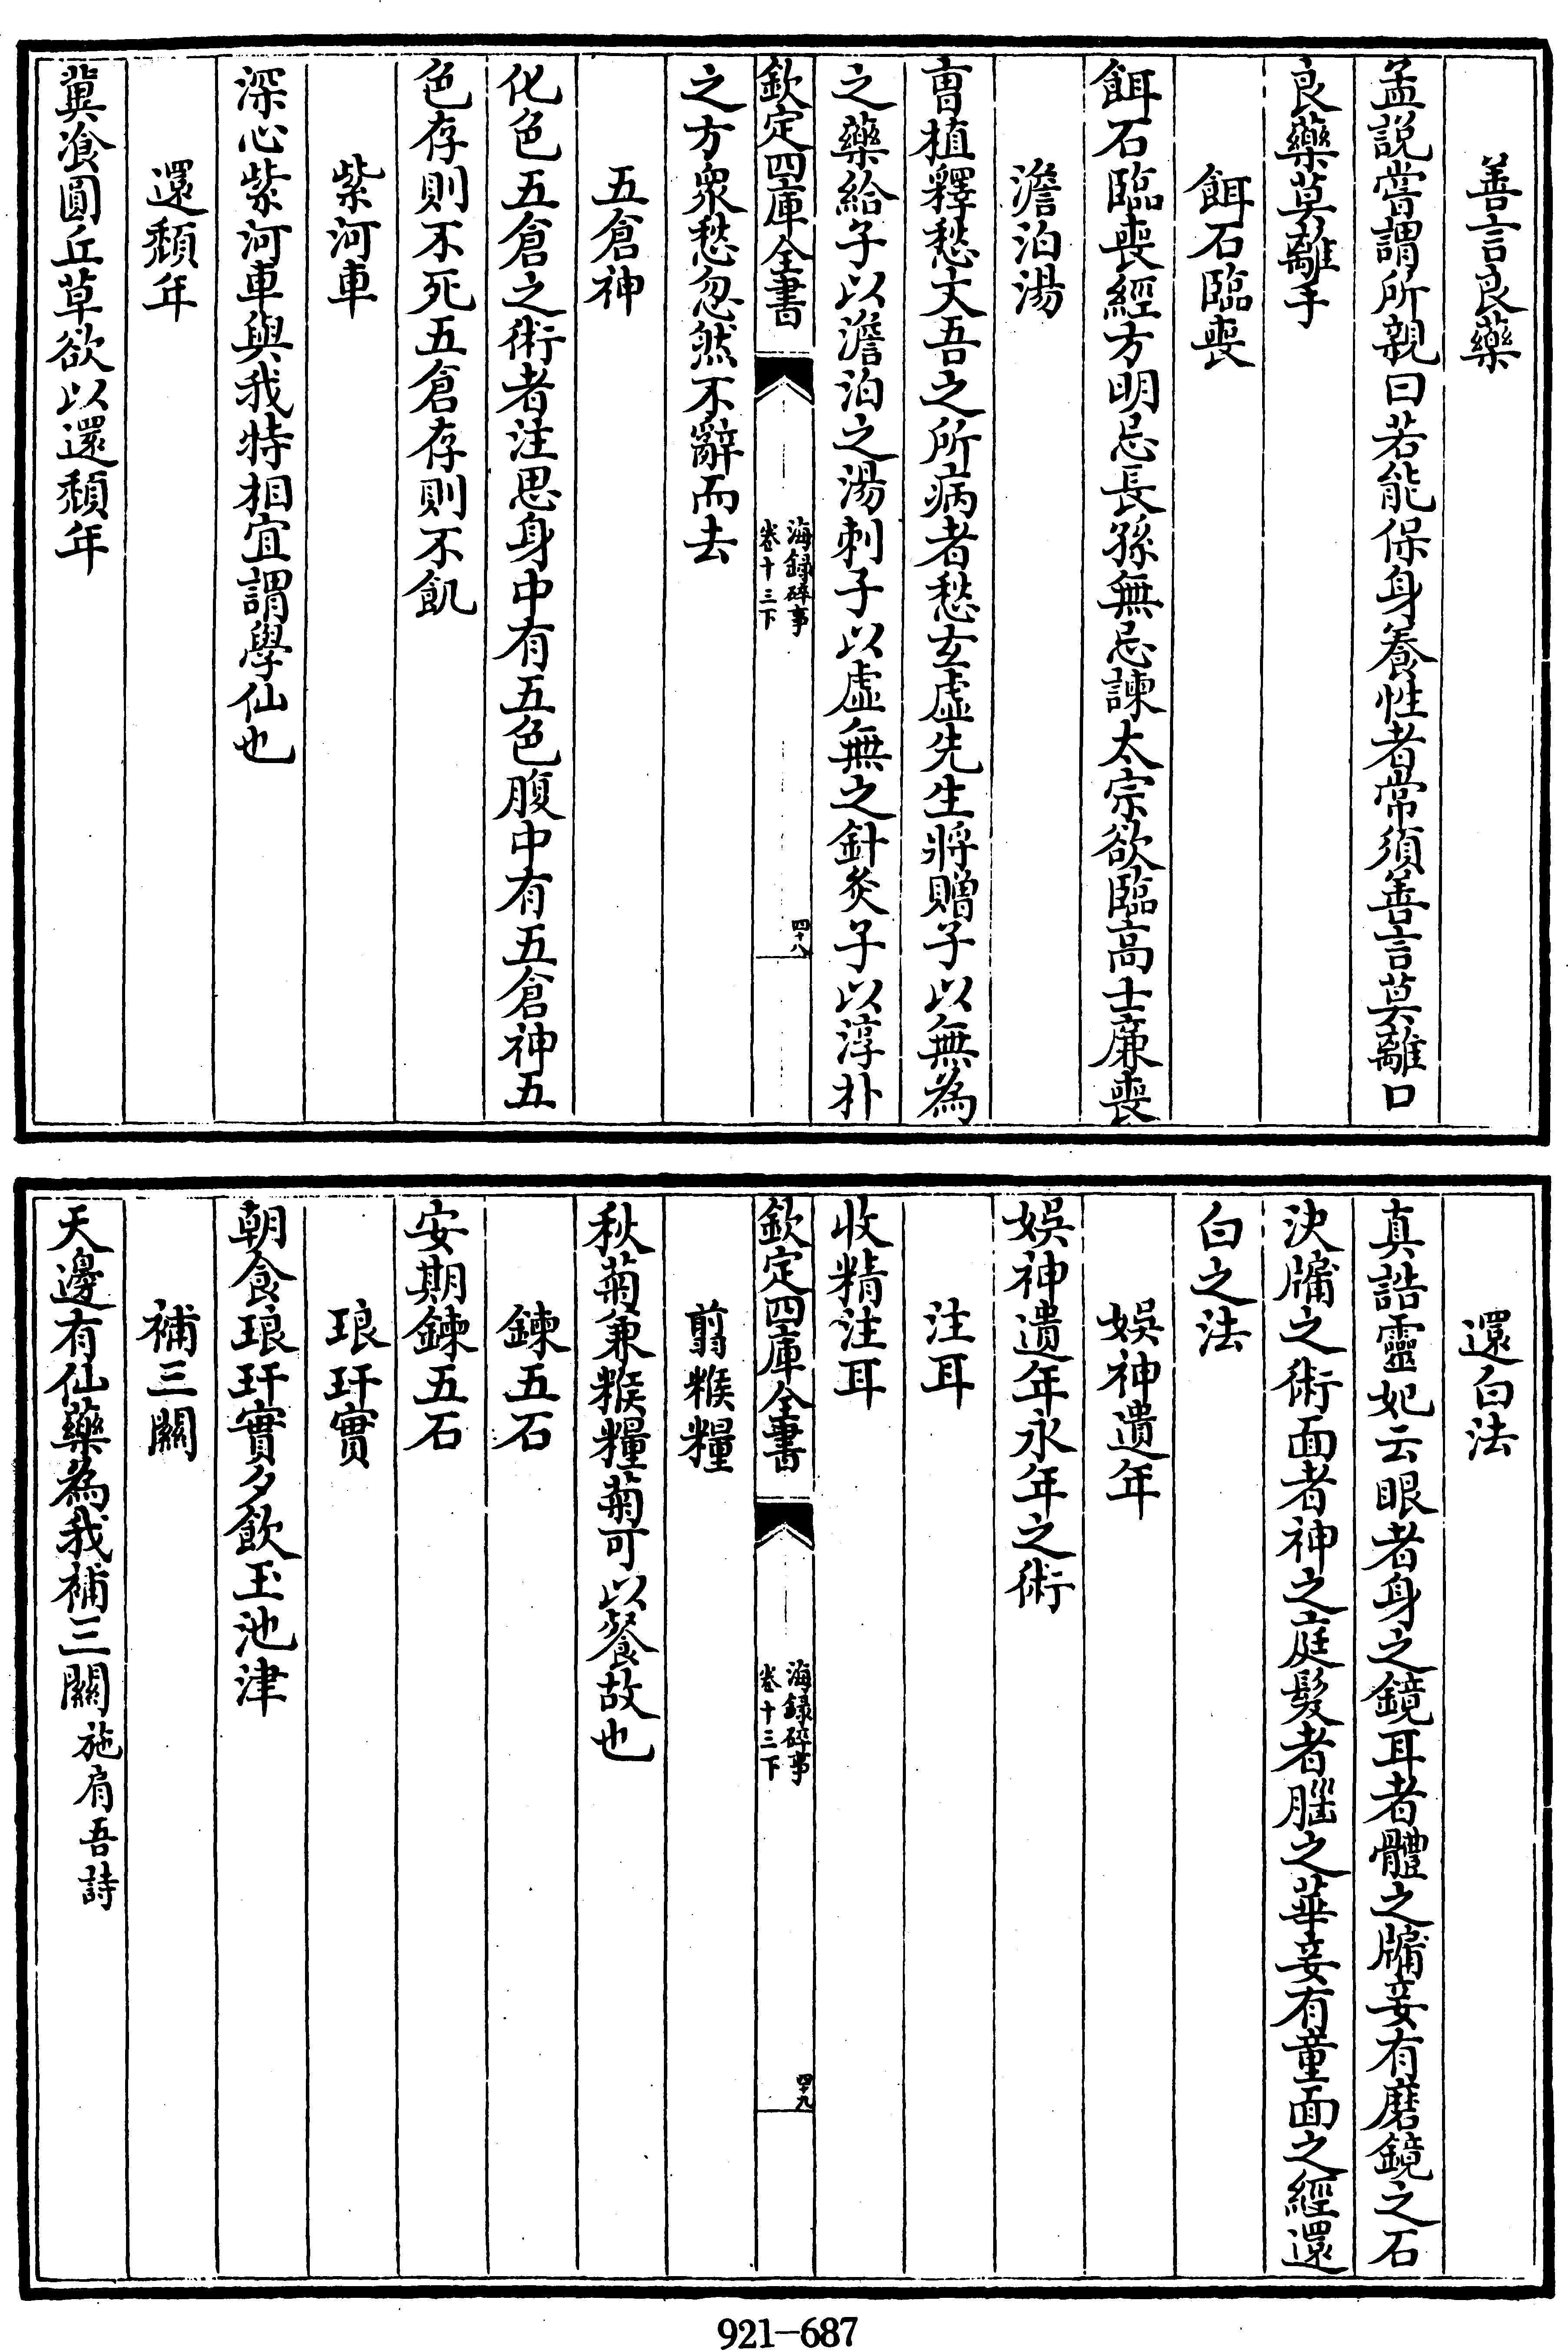 善言良藥
孟說嘗謂所親曰若能保身養性者常須善言莫離口
良藥莫離手
餌石臨喪
餌石臨喪經方明忌長孫無忌諫太宗欲臨高士廉喪
澹泊湯
曹植釋愁文吾之所病者愁玄虛先生將贈子以無為
之藥給子以澹泊之湯刺子以虛無之針灸子以淳朴
欽定四庫全書
海録碎事
卷十三下
四十八
之方衆愁忽然不辭而去
五倉神
化色五倉之術者注思身中有五色腹中有五倉神五
色存則不死五倉存則不飢
紫河車
深心紫河車與我特相宜謂學仙也
還頹年
冀飡圓丘草欲以還頹年
還白法
真誥靈妃云眼者身之鏡耳者體之牖妾有磨鏡之石
決牖之術面者神之庭髮者腦之華妾有童面之經還
白之法
娛神遺年
娛神遺年永年之術
注耳
收精注耳
欽定四庫全書
海録碎事
卷十三下
四十九
翦糇糧
秋菊兼糇糧菊可以餐故也
鍊五石
安期鍊五石
琅玕實
朝食琅玕實夕飲玉池津
補三關
天邊有仙藥為我補三關施肩吾詩
921-687